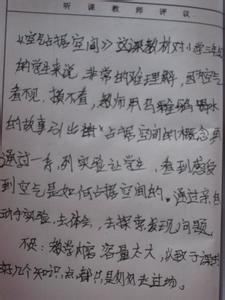 听课教师评议
《空气占据空间》这课教材对小学三年级
的学生来说，非常的难理解，因为空气
看不见、摸不着，老师用乌鸦喝水
的故事引出"占据空间的"概念再
通过一系列实验让学生看到感受
到空气是如何占据空间的。通过亲自
动手实验，去体会，去探索发现问题
不足：教学内容容量太大，以致于课
好几个知识点都只是匆匆走过场。